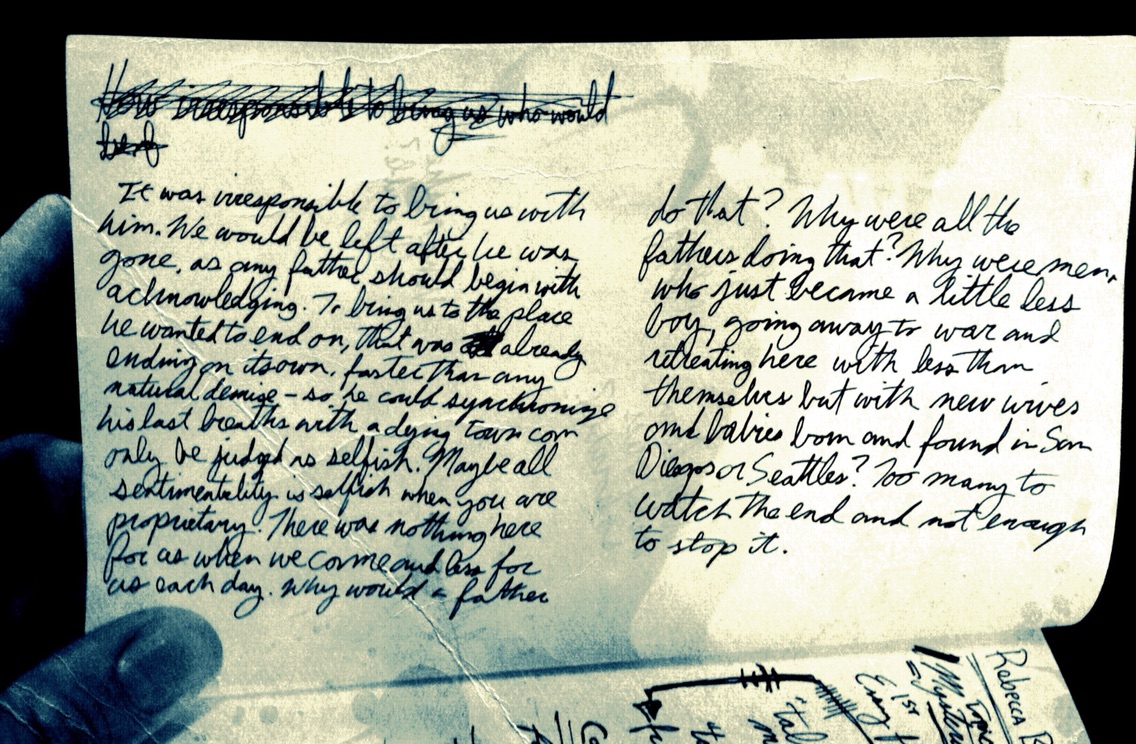 How irresponsible to bring us who would
be of
It was irresponsible to bring us with
him. We would be left after he was
gone, as any father should begin with
acknowledging. To bring us to the place
he wanted to end on, that was already
ending on its own, faster than any
natural demise – so he could synchronize
his last breaths with a dying town can
only be judged as selfish. Maybe all
sentimentality is selfish when you are
proprietary. There was nothing here
for us when we come and less for
us each day. Why would a father
do that? Why were all the
fathers doing that? Why were men,
who just became a little less
boy, going away to war and
retreating here with less than
themselves but with new wives
and babies born and found in San
Diegos or Seattles? Too many to
watch the end and not enough
to stop it.
Rebecca
1st